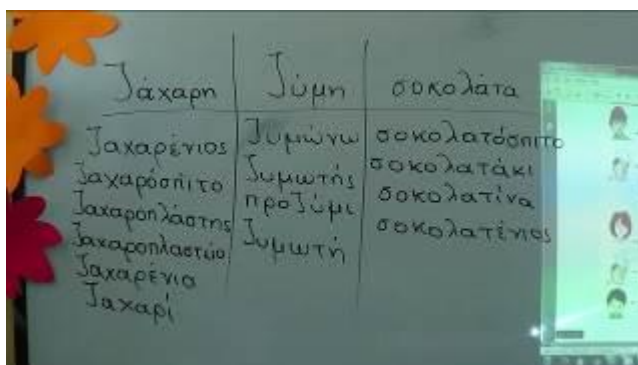 ζάχαρη ζύμη σοκολάτα
ζαχαρένιος ζυμώνω σοκολατόσπιτο
ζαχαρόσπιτο ζυμωτής σοκολατάκι
ζαχαροπλάστης προζύμι σοκολατίνα
ζαχαροπλαστείο ζυμωτή σοκολατένιος
ζαχαρένια
ζαχαρί